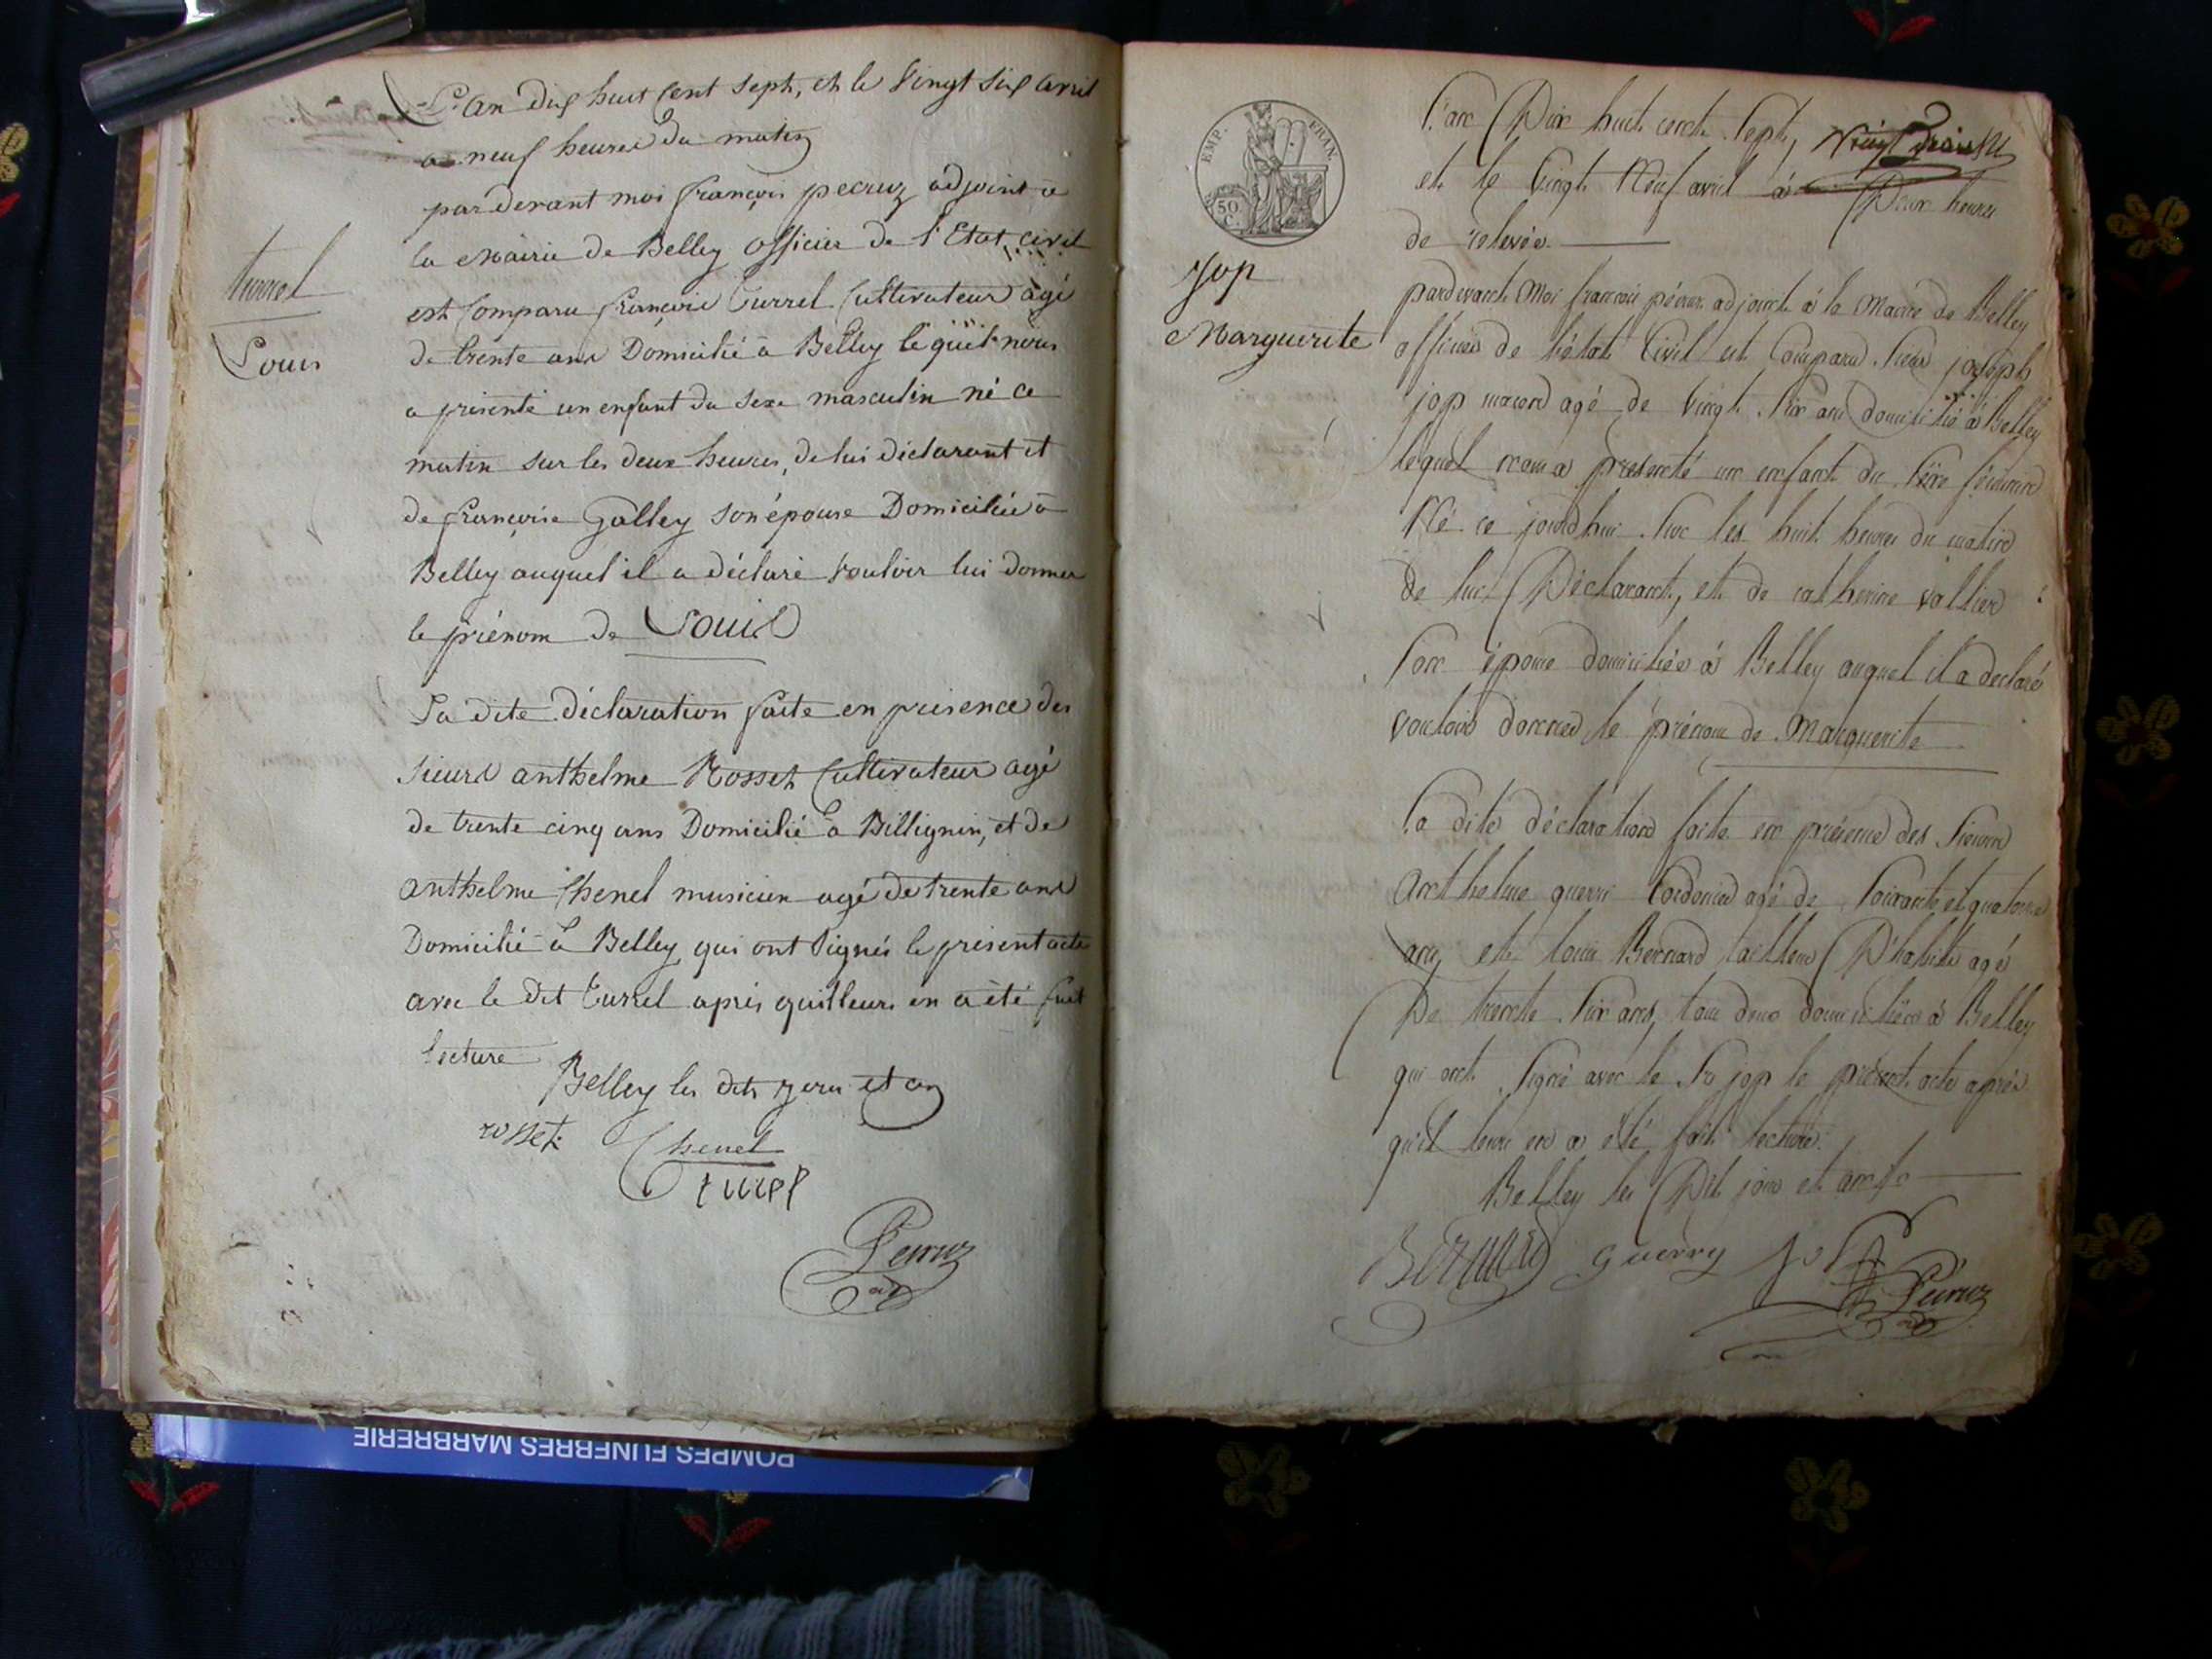 L'an dix huit cent sept, et le vingt six avril
a neuf heures du matin
pardevant moi françois pecruz adjoint a
la Mairie de Belley officier de l'Etat civil
est comparu françois Turrel Cultivateur agé
de trente ans Domicilié a Belley lequel nous
a présenté un enfant du sexe masculin né ce
matin sur les deux heures, de lui déclarant et
de françoise Galley son épouse Domiciliée a
Belley auquel il a déclaré vouloir lui donner
le prénom de Louis
La dite déclaration faite en présence des
sieurs anthelme Rosset Cultivateur agé
de trente cinq ans Domicilié a Billignin, et de
anthelme Chenel musicien agé de trente ans
Domicilié a Belley qui ont signés le présent acte
avec le dit Turrel après qu'il leurs en a été fait
lecture
Belley les dits jours et an
turrel
Louis
rosset
Chenel
turel
Pecruz
adj
EMP. FRAN.
50
C.
Jop
Marguerite
L'an Dix huit cent sept,
et le vingt Neuf avril à Deux heures
de relevée
pardevant Moi francois pécruz adjoint à la Mairie de Belley
officier de l'état Civil est Comparu sieur joseph
jop macon agé de vingt six ans domicilié à Belley
lequel nous a présenté un enfant du sexe féminin
Né ce jourd'hui sur les huit heures du matin
de lui Déclarant, et de catherine vallier
son épouse domiciliée à Belley auquel il a déclaré
vouloir donner le prénom de Marguerite
La dite déclaration faite en présence des sieurs
Anthelme guerri Cordonier agé de soixante et quatorze
ans et louis Bernard tailleur D'habits agé
De trente six ans, tous deux domiciliés à Belley
qui ont signé avec le Sr jop le présent acte après
qu'il leurs en a été fait lecture.
Belley les Dit jour et an
Bernard guerry jop
Pécruz
adj
POMPES FUNEBRES MARBRERIE